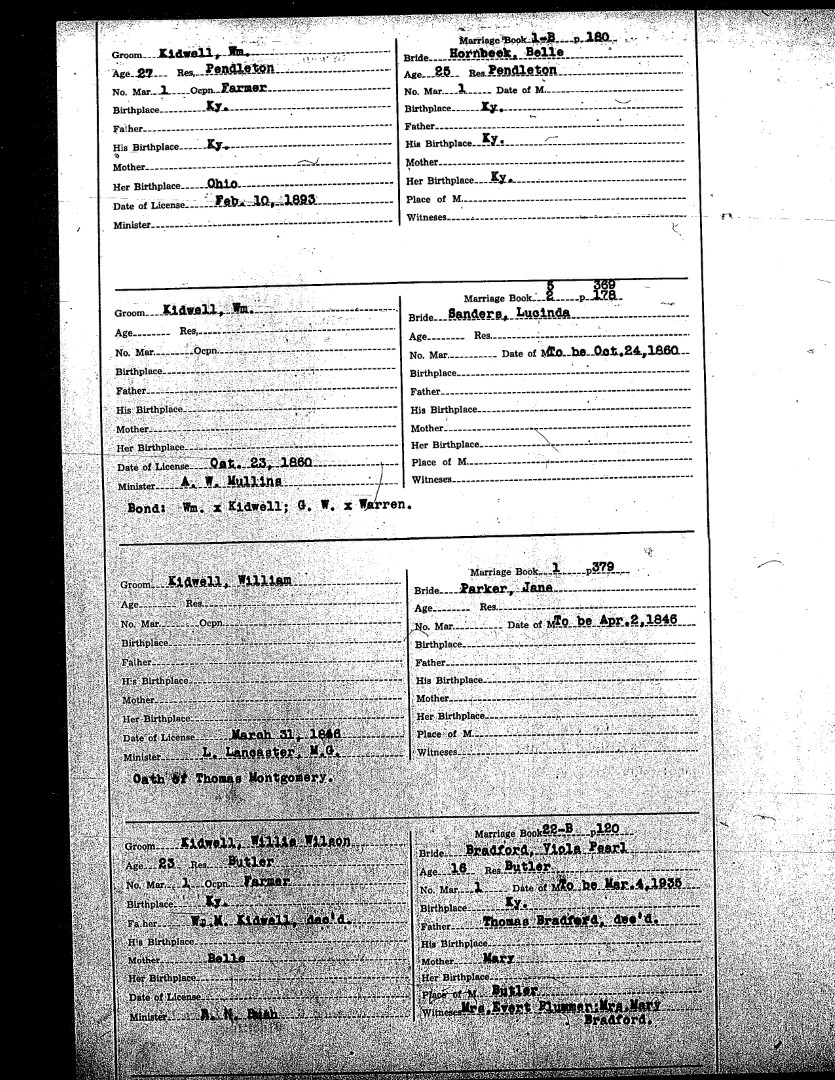 Marriage Book 1-B p. 180
Groom Kidwell, Wm.
Bride Hornbeek, Belle
Age 27 Res. Pendleton
Age 25 Res Pendleton
No. Mar. 1 Ocpn. Farmer
No. Mar. 1 Date of M.
Birthplace Ky.
Birthplace Ky.
Father
Father
His Birthplace Ky.
His Birthplace Ky.
Mother
Mother
Her Birthplace Ohio
Her Birthplace Ky.
Date of License Feb. 10, 1893
Place of M.
Minister
Witneses
5 369
Marriage Book 2 p. 178
Groom Kidwell, Wm.
Bride Sanders, Lucinda
Age Res.
Age Res.
No. Mar. Ocpn.
No. Mar. Date of M. To be Oct.24,1860
Birthplace
Birthplace
Father
Father
His Birthplace
His Birthplace
Mother
Mother
Her Birthplace
Her Birthplace
Date of License Oct. 23, 1860
Place of M.
Minister A. W. Mullins
Witneses
Bond: Wm. x Kidwell; G. W. x Warren.
Marriage Book 1 p379
Groom Kidwell, William
Bride Parker, Jane
Age Res.
Age Res.
No. Mar. Ocpn.
No. Mar. Date of M To be Apr.2,1846
Birthplace
Birthplace
Father
Father
His Birthplace
His Birthplace
Mother
Mother
Her Birthplace
Her Birthplace
Date of License March 31, 1846
Place of M.
Minister L. Lancaster, M.G.
Witneses
Oath of Thomas Montgomery.
Marriage Book 22-B p120
Groom Kidwell, Willie Wilson
Bride Bradford, Viola Pearl
Age 23 Res. Butler
Age 16 Res Butler
No. Mar. 1 Ocpn. Farmer
No. Mar. 1 Date of M To be Mar.4,1935
Birthplace Ky.
Birthplace Ky.
Father Wm.M. Kidwell, dec'd.
Father Thomas Bradford, dec'd.
His Birthplace
His Birthplace
Mother Belle
Mother Mary
Her Birthplace
Her Birthplace
Date of License
Place of M. Butler
Minister R. N. Bush
Witneses Mrs.Evert Plummer;Mrs.Mary
Bradford.